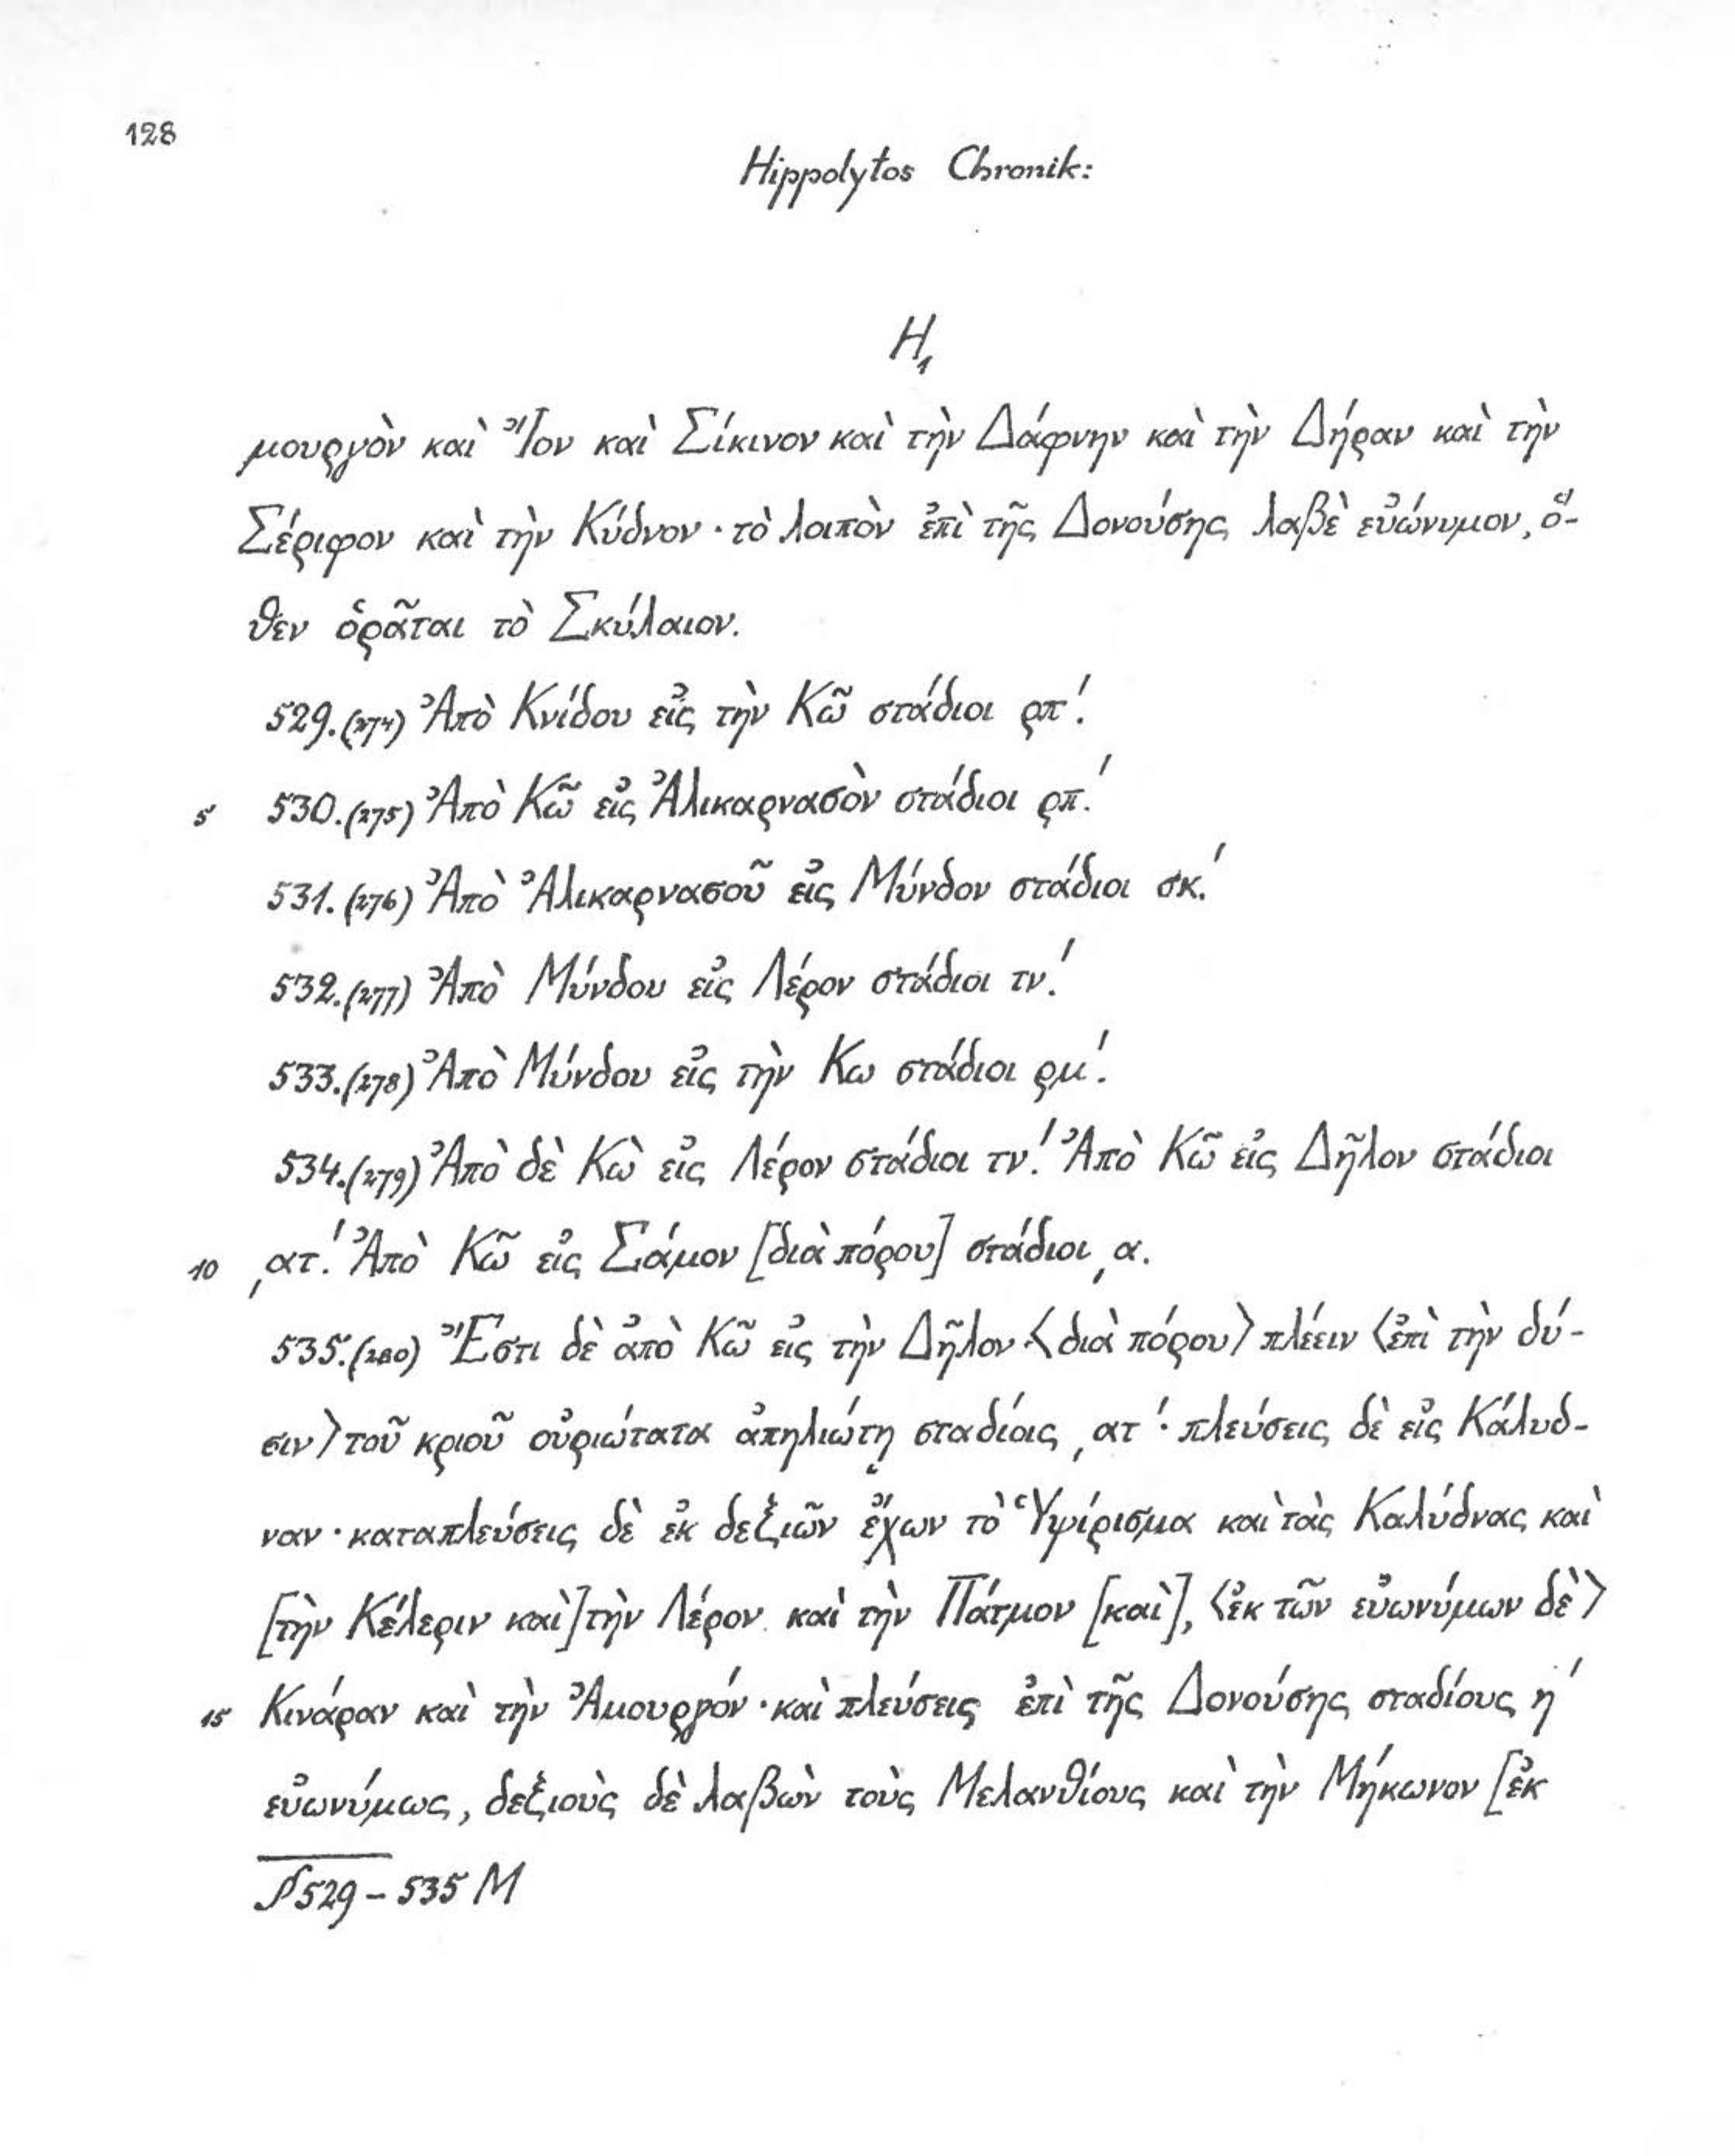 128
Hippolytos Chronik:
H₁
μουργὸν καὶ Ἴον καὶ Σίκινον καὶ τὴν Δάφνην καὶ τὴν Δήραν καὶ τὴν
Σέριφον καὶ τὴν Κύδνον · τὸ λοιπὸν ἐπὶ τῆς Δονούσης λαβὲ εὐώνυμον, ὅ-
θεν ὁρᾶται τὸ Σκύλαιον.
529.(274) Ἀπὸ Κνίδου εἰς τὴν Κῶ στάδιοι ρπʹ.
5 530.(275) Ἀπὸ Κῶ εἰς Ἀλικαρνασὸν στάδιοι ρπʹ.
531.(276) Ἀπὸ Ἀλικαρνασοῦ εἰς Μύνδον στάδιοι σκʹ.
532.(277) Ἀπὸ Μύνδου εἰς Λέρον στάδιοι τνʹ.
533.(278) Ἀπὸ Μύνδου εἰς τὴν Κω στάδιοι ρμʹ.
534.(279) Ἀπὸ δὲ Κὼ εἰς Λέρον στάδιοι τνʹ. Ἀπὸ Κῶ εἰς Δῆλον στάδιοι
10 ͵ατʹ. Ἀπὸ Κῶ εἰς Σάμον [διὰ πόρου] στάδιοι ͵α.
535.(280) Ἔστι δὲ ἀπὸ Κῶ εἰς τὴν Δῆλον <διὰ πόρου> πλέειν <ἐπὶ τὴν δύ-
σιν> τοῦ κριοῦ οὐριώτατα ἀπηλιώτῃ σταδίοις ͵ατʹ · πλεύσεις δὲ εἰς Κάλυδ-
ναν · καταπλεύσεις δὲ ἐκ δεξιῶν ἔχων τὸ Ὑψίρισμα καὶ τὰς Καλύδνας καὶ
[τὴν Κέλεριν καὶ] τὴν Λέρον καὶ τὴν Πάτμον [καὶ], <ἐκ τῶν εὐωνύμων δὲ>
15 Κινάραν καὶ τὴν Ἀμουργόν · καὶ πλεύσεις ἐπὶ τῆς Δονούσης σταδίους ηʹ
εὐωνύμως, δεξιοὺς δὲ λαβὼν τοὺς Μελανθίους καὶ τὴν Μήκωνον [ἐκ
§529 – 535 M